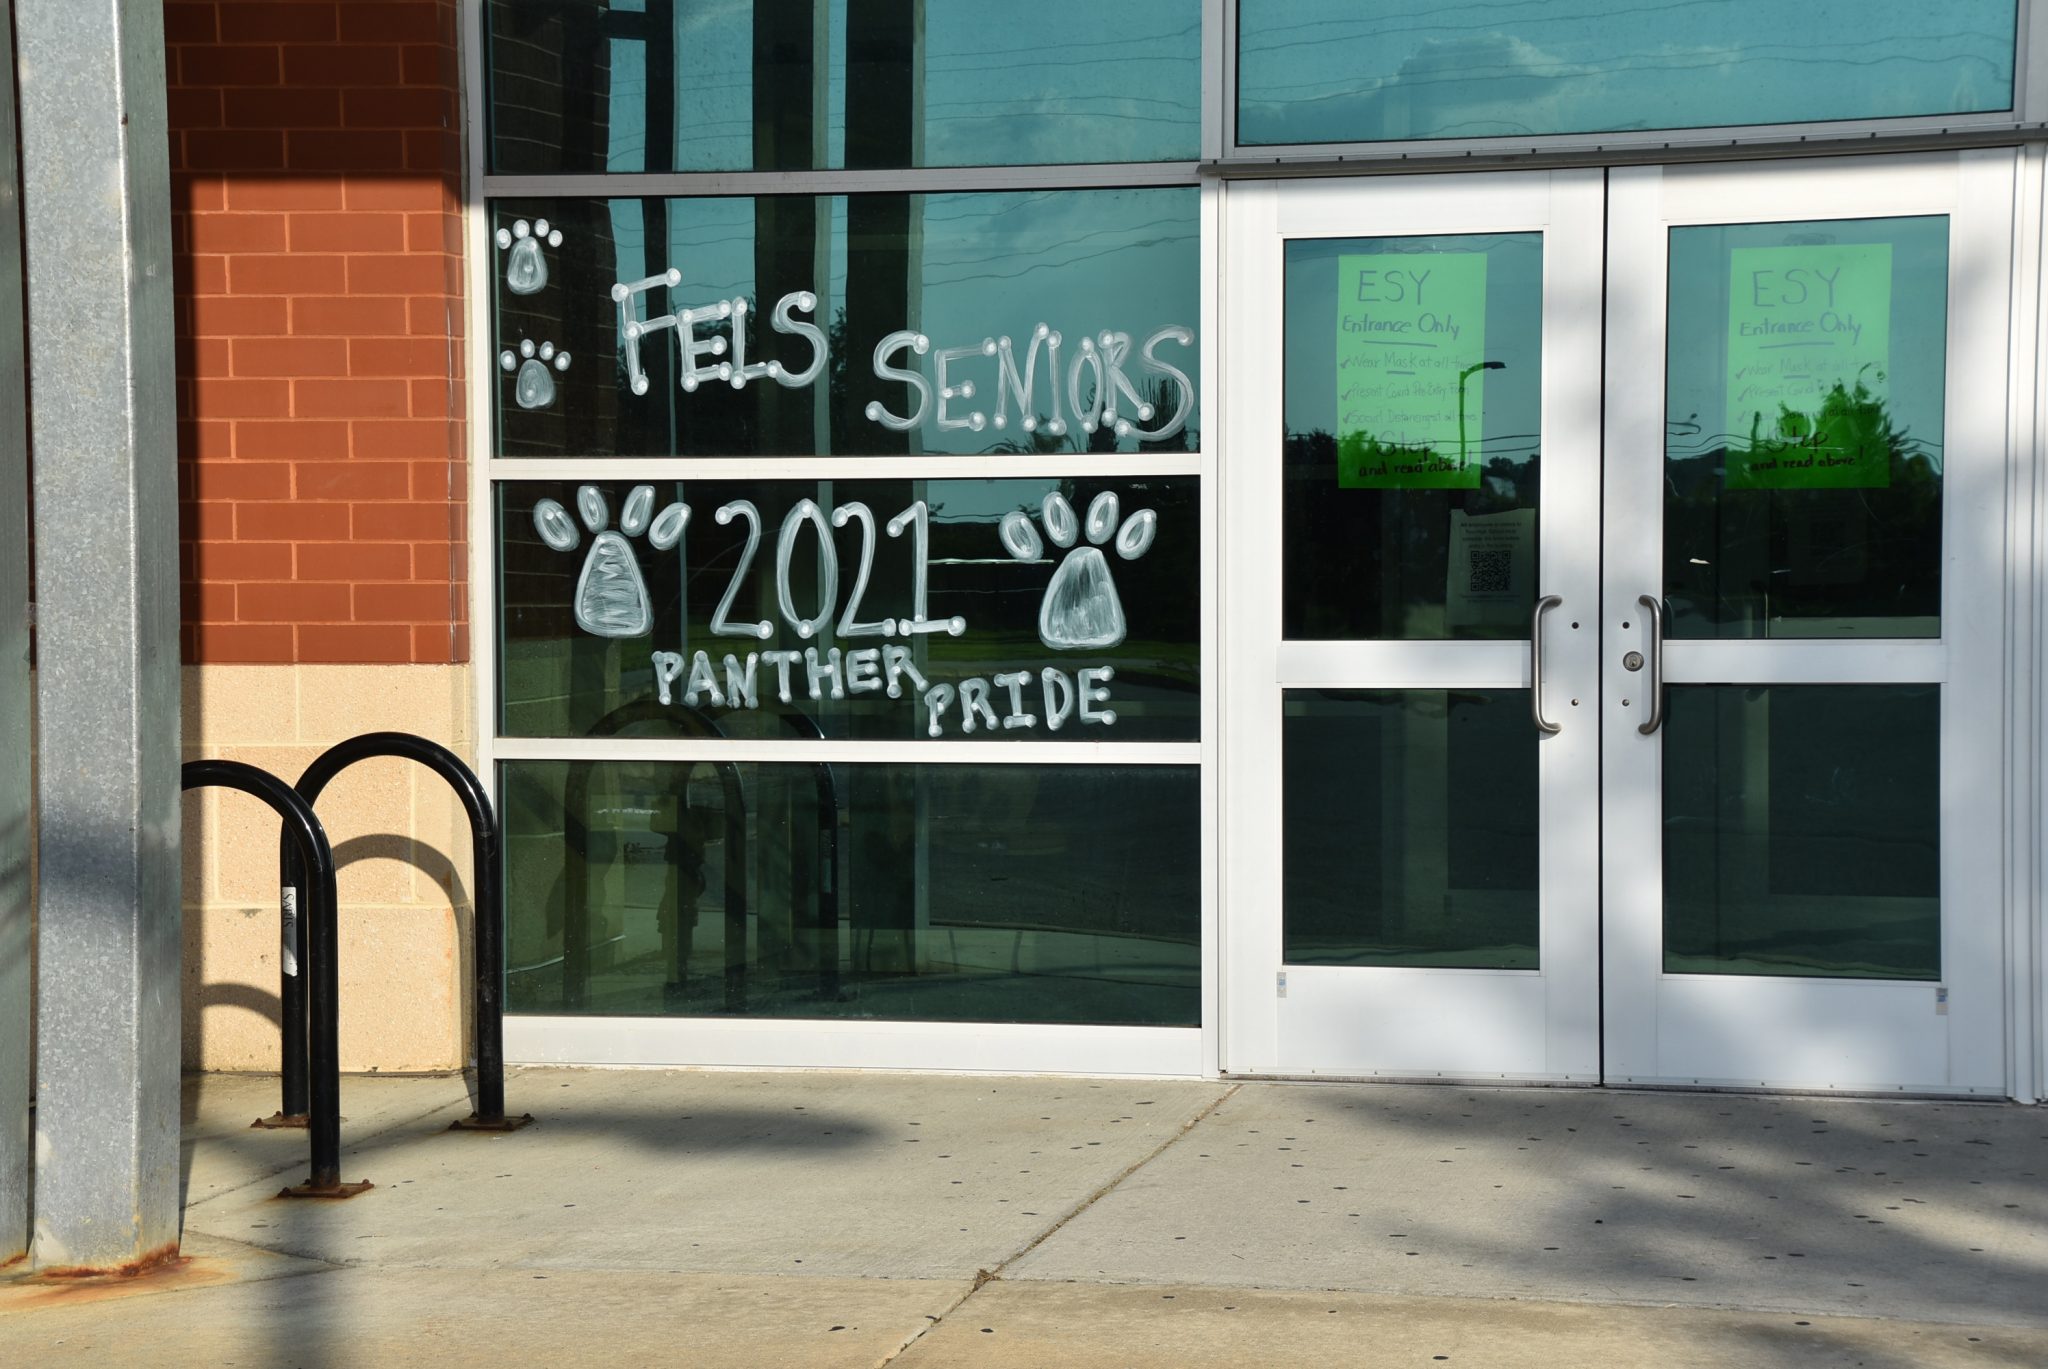 FELS SENIORS
2021
PANTHER PRIDE
ESY
Entrance Only
✓Wear Mask at all
✓Present Covid Pre Entry Form
✓Social Distancing at all times
Stop
and read above!
ESY
Entrance Only
✓Wear Mask at all
✓Present Covid
at all
Stop
and read above!
SARIS